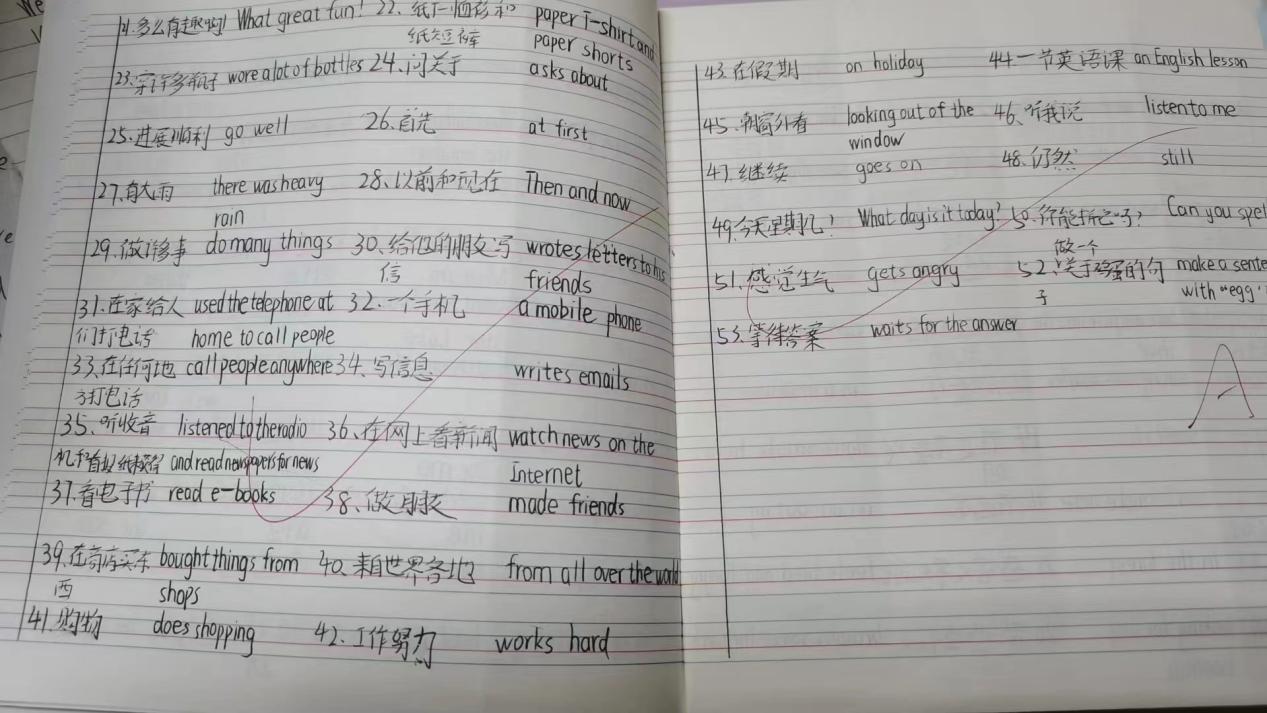 21.多么有趣啊! What great fun! 22. 纸T-恤衫和 paper T-shirt and
纸短裤 paper shorts
23.穿许多瓶子 wore a lot of bottles 24.问关于 asks about
25.进展顺利 go well 26.首先 at first
27.有大雨 there was heavy 28.以前和现在 Then and now
rain
29.做许多事 do many things 30.给他的朋友写 wrotes letters to his
信 friends
31.在家给人 used the telephone at 32.一个手机 a mobile phone
们打电话 home to call people
33.在任何地 call people anywhere 34.写信息 writes emails
方打电话
35.听收音 listened to the radio 36.在网上看新闻 watch news on the
机和看报纸 and read newspapers for news Internet
37.看电子书 read e-books 38.做朋友 made friends
39.在商店买东 bought things from 40.来自世界各地 from all over the world
西 shops
41.购物 does shopping 42.工作努力 works hard
43.在假期 on holiday 44.一节英语课 an English lesson
45.朝窗外看 looking out of the 46.听我说 listen to me
window
47.继续 goes on 48.仍然 still
49.今天星期几? What day is it today? 50.你能拼它吗? Can you spel
做一个
51.感觉生气 gets angry 52.关于鸡蛋的句 make a sente
子 with "egg"
53.等待答案 waits for the answer
A